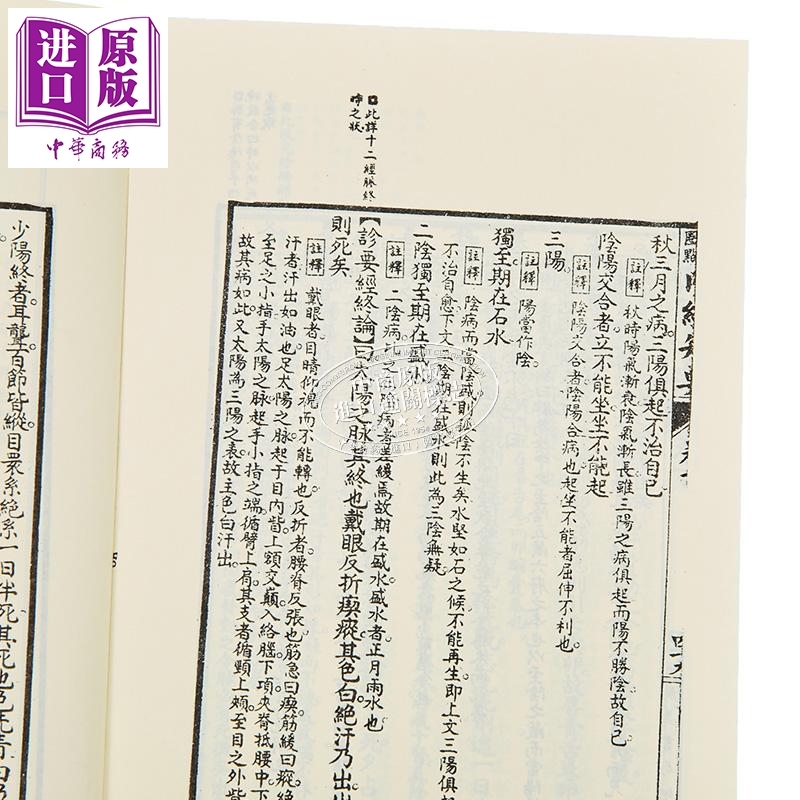 进口
原版
中華商務
此詳十二經脉終
啼之狀
秋三月之病三陽俱起不治自已
註釋 秋時陽氣漸衰陰氣漸長雖三陽之病俱起而陽不勝陰故自已
陰陽交合者立不能坐坐不能起
註釋 陰陽交合者陰陽合病也起坐不能者屈伸不利也
三陽
註釋 陽當作陰
獨至期在石水
註釋 陰病而當陰盛則孤陰不生矣水堅如石之候不能再生即上文三陽俱起
不治自愈下文二陰期在盛水則此為三陰無疑
二陰獨至期在盛水
註釋 二陰病比之三陰病者差緩焉故期在盛水盛水者正月雨水也
【診要經終論】曰太陽之脉其終也戴眼反折瘈瘲其色白絕汗乃出出
則死矣
註釋 戴眼者目睛仰視而不能轉也反折者腰脊反張也筋急曰瘈筋緩曰瘲絕
汗者汗出如油也足太陽之脉起于目內眥上額交巔入絡腦下項夾脊抵腰中下
至足之小指手太陽之脉起手小指之端循臂上肩其支者循頸上頰至目之外眥
故其病如此又太陽為三陽之表故主色白汗出
少陽終者耳聾百節皆縱目睘系絕系一日半死其死也色先青白乃